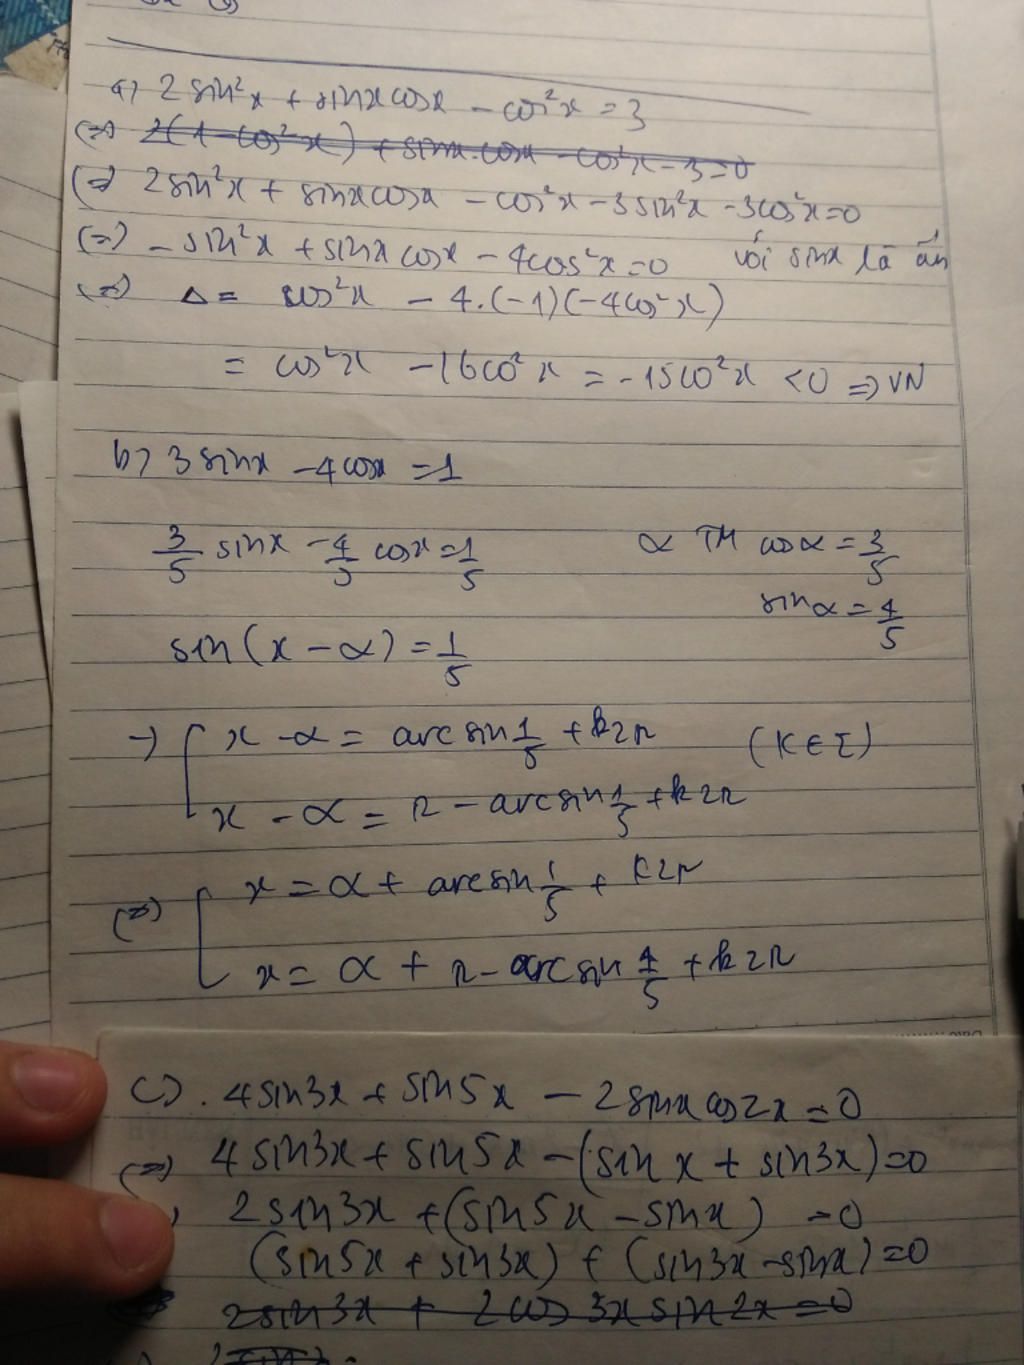 a) 2 sin²x + sinxcosx - cos²x = 3
(=) 2(1-cos²x) + sinx.cosx - cos²x - 3 = 0
(=) 2sin²x + sinxcosx - cos²x - 3sin²x - 3cos²x = 0
(=) - sin²x + sinx cosx - 4cos²x = 0 với sinx là ẩn
(=) Δ = cos²x - 4.(-1)(-4cos²x)
= cos²x - 16cos²x = -15cos²x < 0 => VN
b) 3 sinx - 4cosx = 1
3/5 sinx - 4/5 cosx = 1/5 α TM cosα = 3/5
sinα = 4/5
sin(x - α) = 1/5
→ [ x - α = arcsin 1/5 + k2π (K∈Z)
x - α = π - arcsin 1/5 + k2π
(=) [ x = α + arcsin 1/5 + k2π
x = α + π - arcsin 1/5 + k2π
c). 4sin3x + sin5x - 2sinxcos2x = 0
(=) 4sin3x + sin5x - (sinx + sin3x) = 0
2sin3x + (sin5x - sinx) = 0
(sin5x + sin3x) + (sin3x - sinx) = 0
2sin3x + 2cos3xsin2x = 0